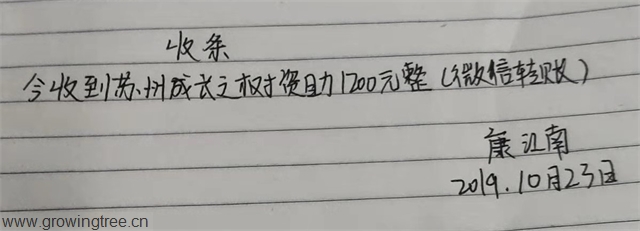 收条
今收到苏州成长之树资助1200元整(微信转账)
康江南
2019.10月23日
www.growingtree.cn